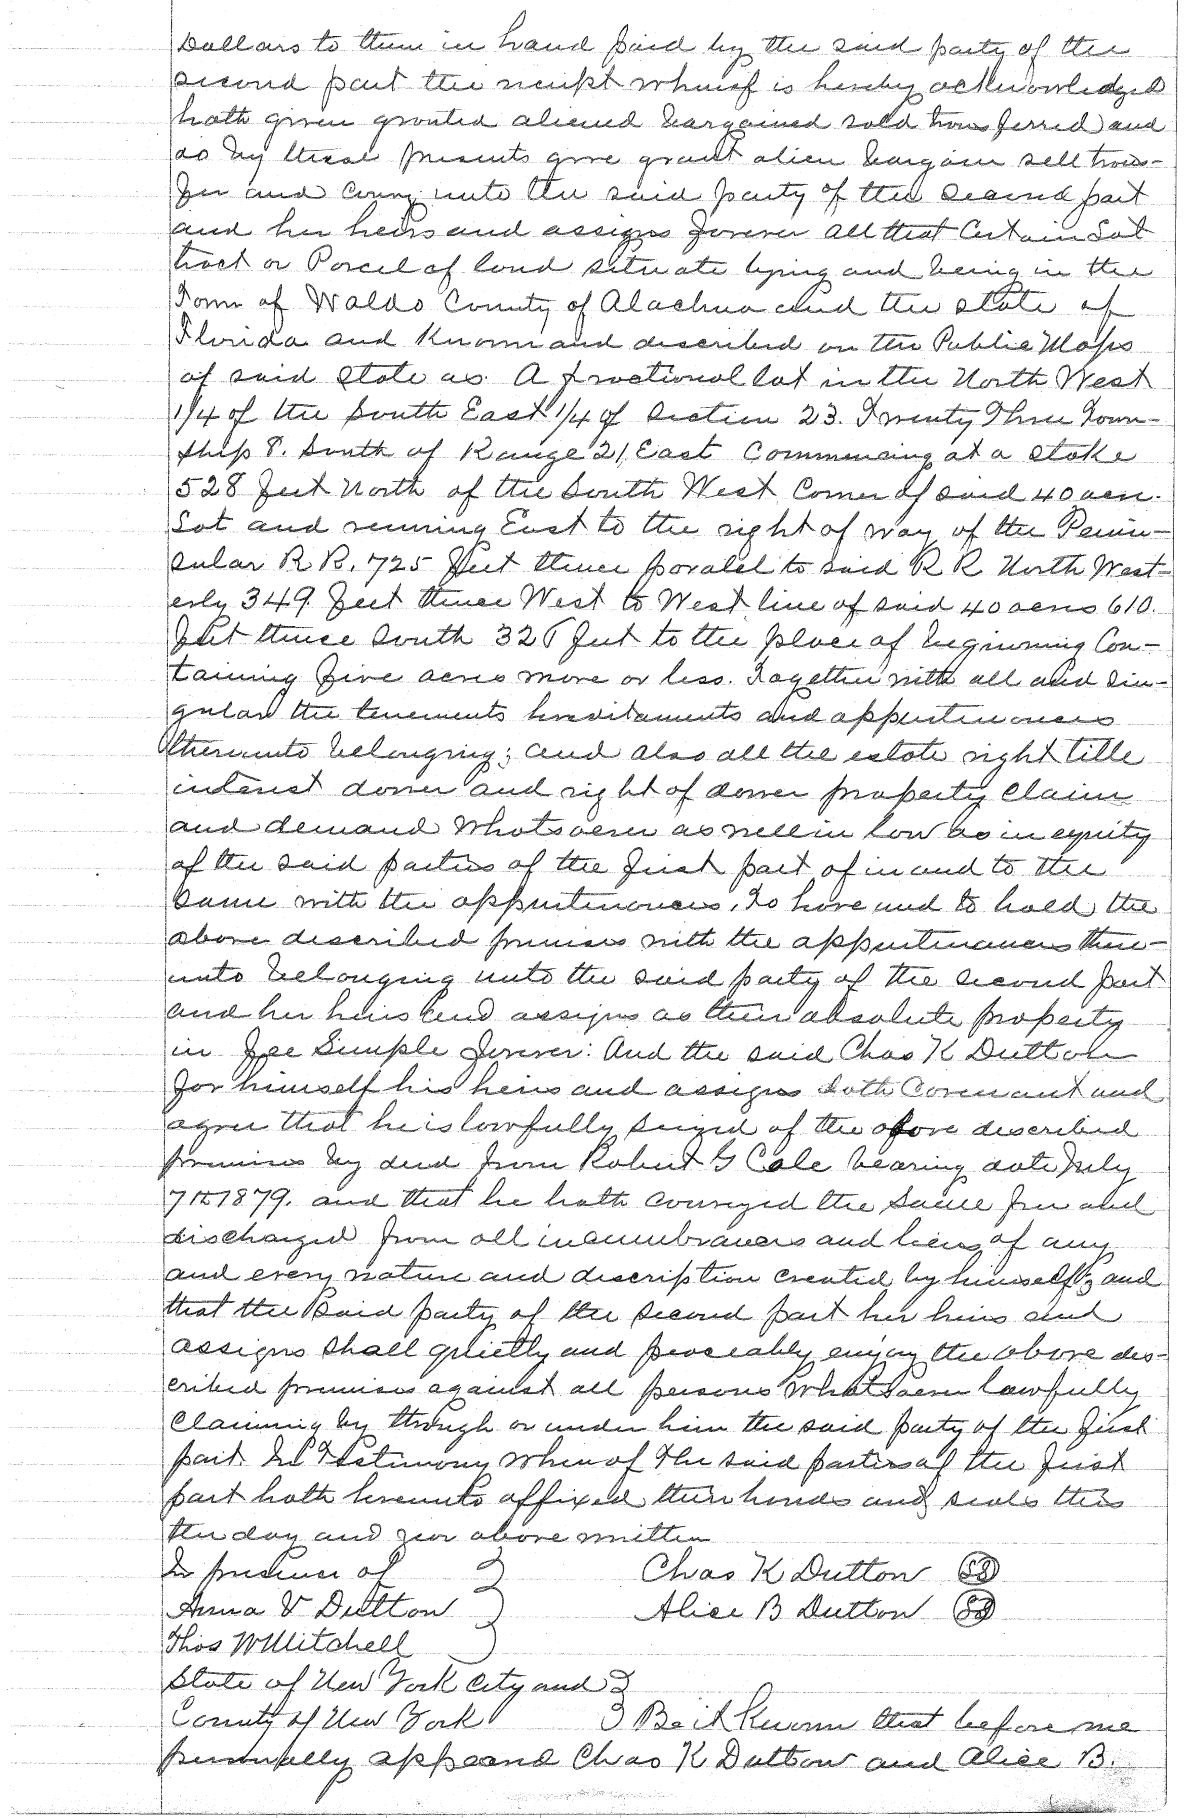 Dollars to them in hand paid by the said party of the
second part the receipt whereof is hereby acknowledged
hath given granted aliened bargained sold transferred and
do by these presents give grant alien bargain sell trans-
fer and convey unto the said party of the second part
and her heirs and assigns forever all that Certain Lot
tract or Parcel of land situate lying and being in the
Town of Waldo County of Alachua and the state of
Florida and Known and described on the Public Maps
of said state as A fractional lot in the North West
1/4 of the South East 1/4 of Section 23. Twenty Three Town-
ship 8. South of Range 21, East Commencing at a stake
528 feet North of the South West Corner of said 40 acre.
Lot and running East to the right of way of the Penin-
sular R R. 725 feet thence paralel to said R R North West-
erly 349 feet thence West to West line of said 40 acres 610.
feet thence South 326 feet to the place of beginning Con-
taining five acres more or less. Together with all and sin-
gular the tenements hereditaments and appurtenances
thereunto belonging; and also all the estate right title
interest dower and right of dower property claim
and demand Whatsoever as well in law as in equity
of the said parties of the first part of in and to the
same with the appurtenances, To have and to hold the
above described premises with the appurtenances there-
unto belonging unto the said party of the second part
and her heirs and assigns as their absolute property
in fee Simple forever: And the said Chas K Dutton
for himself his heirs and assigns doth Covenant and
agree that he is lawfully seized of the above described
premises by deed from Robert G Cole bearing date July
7th 1879. and that he hath conveyed the same free and
discharged from all incumbrances and liens of any
and every nature and description created by himself; and
that the said party of the second part her heirs and
assigns shall quietly and peaceably enjoy the above des-
cribed premises against all persons Whatsoever lawfully
claiming by through or under him the said party of the first
part In Testimony Whereof The said parties of the first
part hath hereunto affixed their hands and seals this
the day and year above written
In presence of } Chas K Dutton (SS)
Anna V Dutton } Alice B Dutton (SS)
Thos W Mitchell }
State of New York City and }
County of New York } Be it Known that before me
personally appeared Chas K Dutton and Alice B.